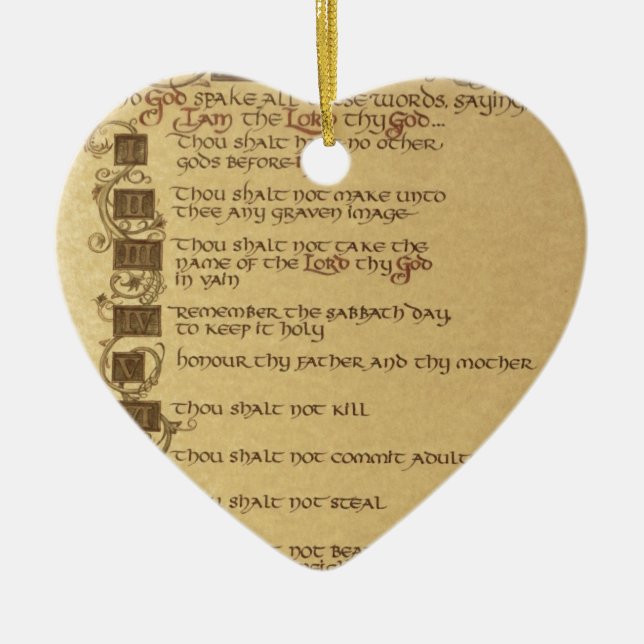 God spake all these words, saying
I am the Lord thy God...
I Thou shalt have no other
gods before
II Thou shalt not make unto
thee any graven image
III Thou shalt not take the
name of the Lord thy God
in vain
IV Remember the Sabbath day,
to keep it holy
V honour thy father and thy mother
VI Thou shalt not kill
Thou shalt not commit adult
shalt not steal
not bea